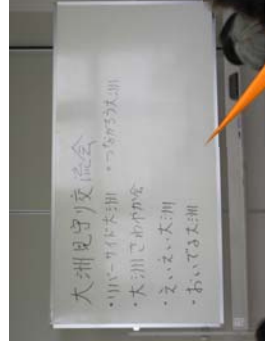 大洲見守り交流会
・リバーサイド大洲 ・つながろう大洲
・大洲さわやか会
・えいえい大洲
・おいでよ大洲